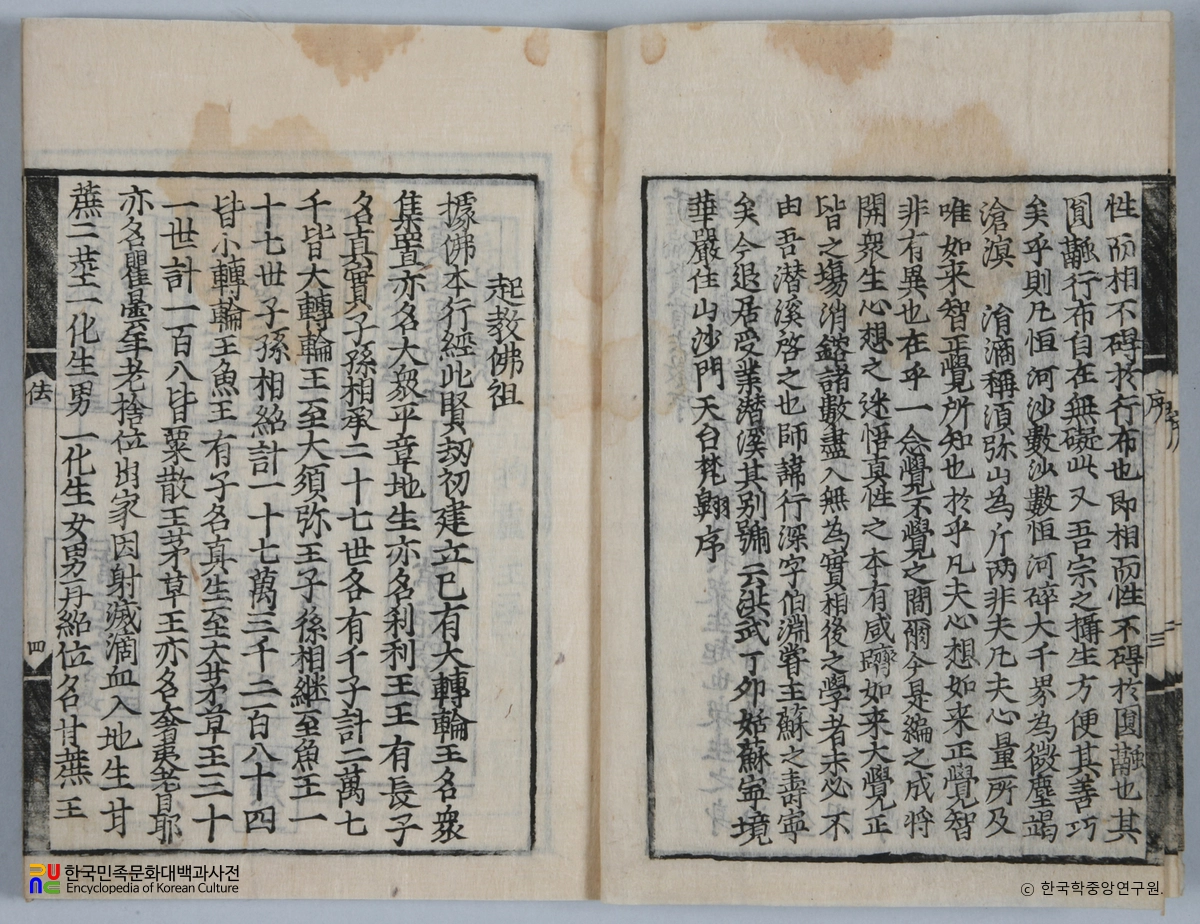 性而相不碍於行布也即相而性不碍於圓融也其
圓融行布自在無礙此又吾宗之攝生方便其善巧
矣乎則凡恒河沙數沙數恒河碎大千界為微塵竭
滄溟 消滴稱須弥山為斤两非夫凡夫心量所及
唯如来智正覺所知也於乎凡夫心想如来正覺智
非有異也在乎一念覺不覺之間爾今是編之成將
開衆生心想之迷悟真性之本有咸躋如来大覺正
皆之場消鎔諸數盡入無為實相後之學者未必不
由吾潜溪啓之也師諱行深字伯淵甞主蘇之壽寧
矣今退居受業潜溪其别號云洪武丁卯姑蘇寧境
華嚴住山沙門天台梵翺序
序
三
起教佛祖
據佛本行經此賢刼初建立已有大轉輪王名衆
集置亦名大衆平章地生亦名刹利王王有長子
名真實子孫相承二十七世各有千子計二萬七
千皆大轉輪王至大須弥王子孫相継至魚王一
十七世子孫相紹計一十七萬三千二百八十四
皆小轉輪王魚王有子名真生至大茅草王三十
一世計一百八皆粟散王茅草王亦名奢夷耆耶
亦名瞿曇年老捨位出家因射滅滴血入地生甘
蔗二莖一化生男一化生女男丹紹位名甘蔗王
法
四
한국민족문화대백과사전
Encyclopedia of Korean Culture
© 한국학중앙연구원.